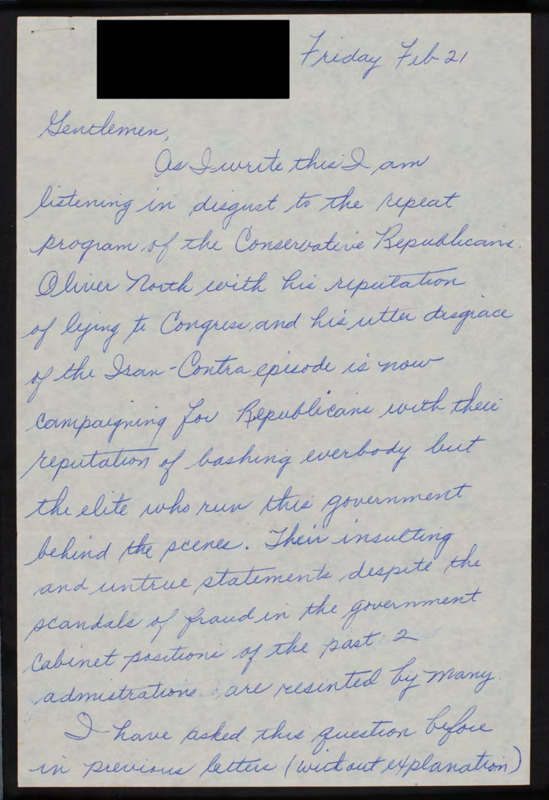 Friday Feb 21
Gentlemen,
As I write this I am
listening in disgust to the repeat
program of the Conservative Republicans.
Oliver North with his reputation
of lying to Congress and his utter disgrace
of the Iran-Contra episode is now
campaigning for Republicans with their
reputation of bashing everbody but
the elite who run this government
behind the scenes. Their insulting
and untrue statements despite the
scandals of fraud in the government
cabinet positions of the past 2
admistrations are resinted by many.
I have asked this question before
in previous letters (without explanation)